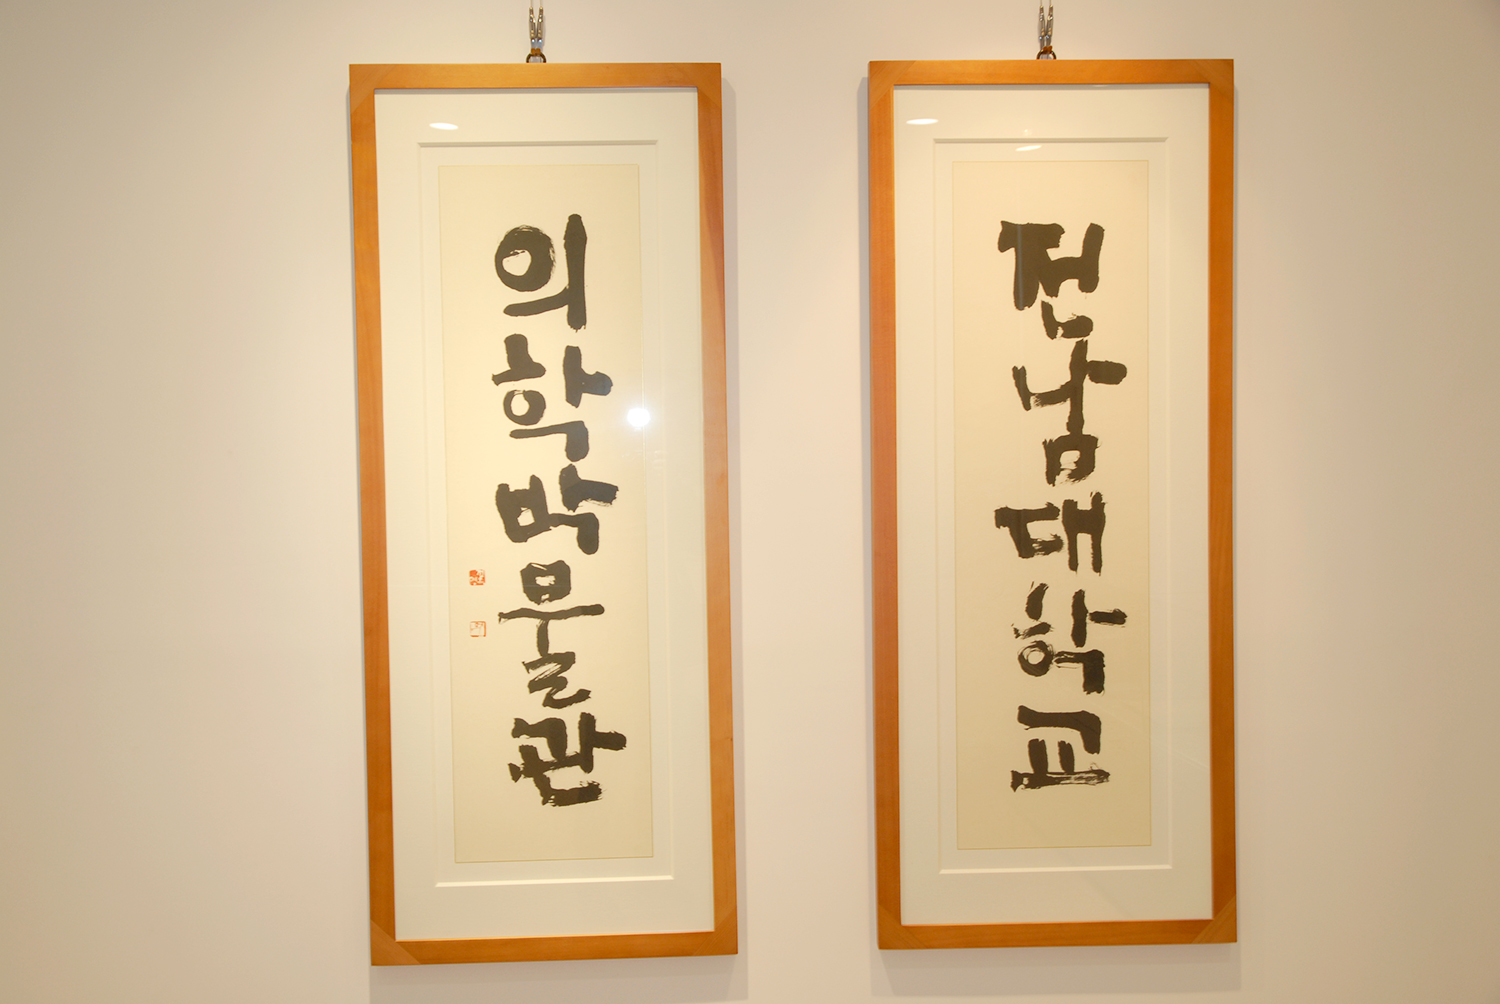 전남대학교
의학박물관